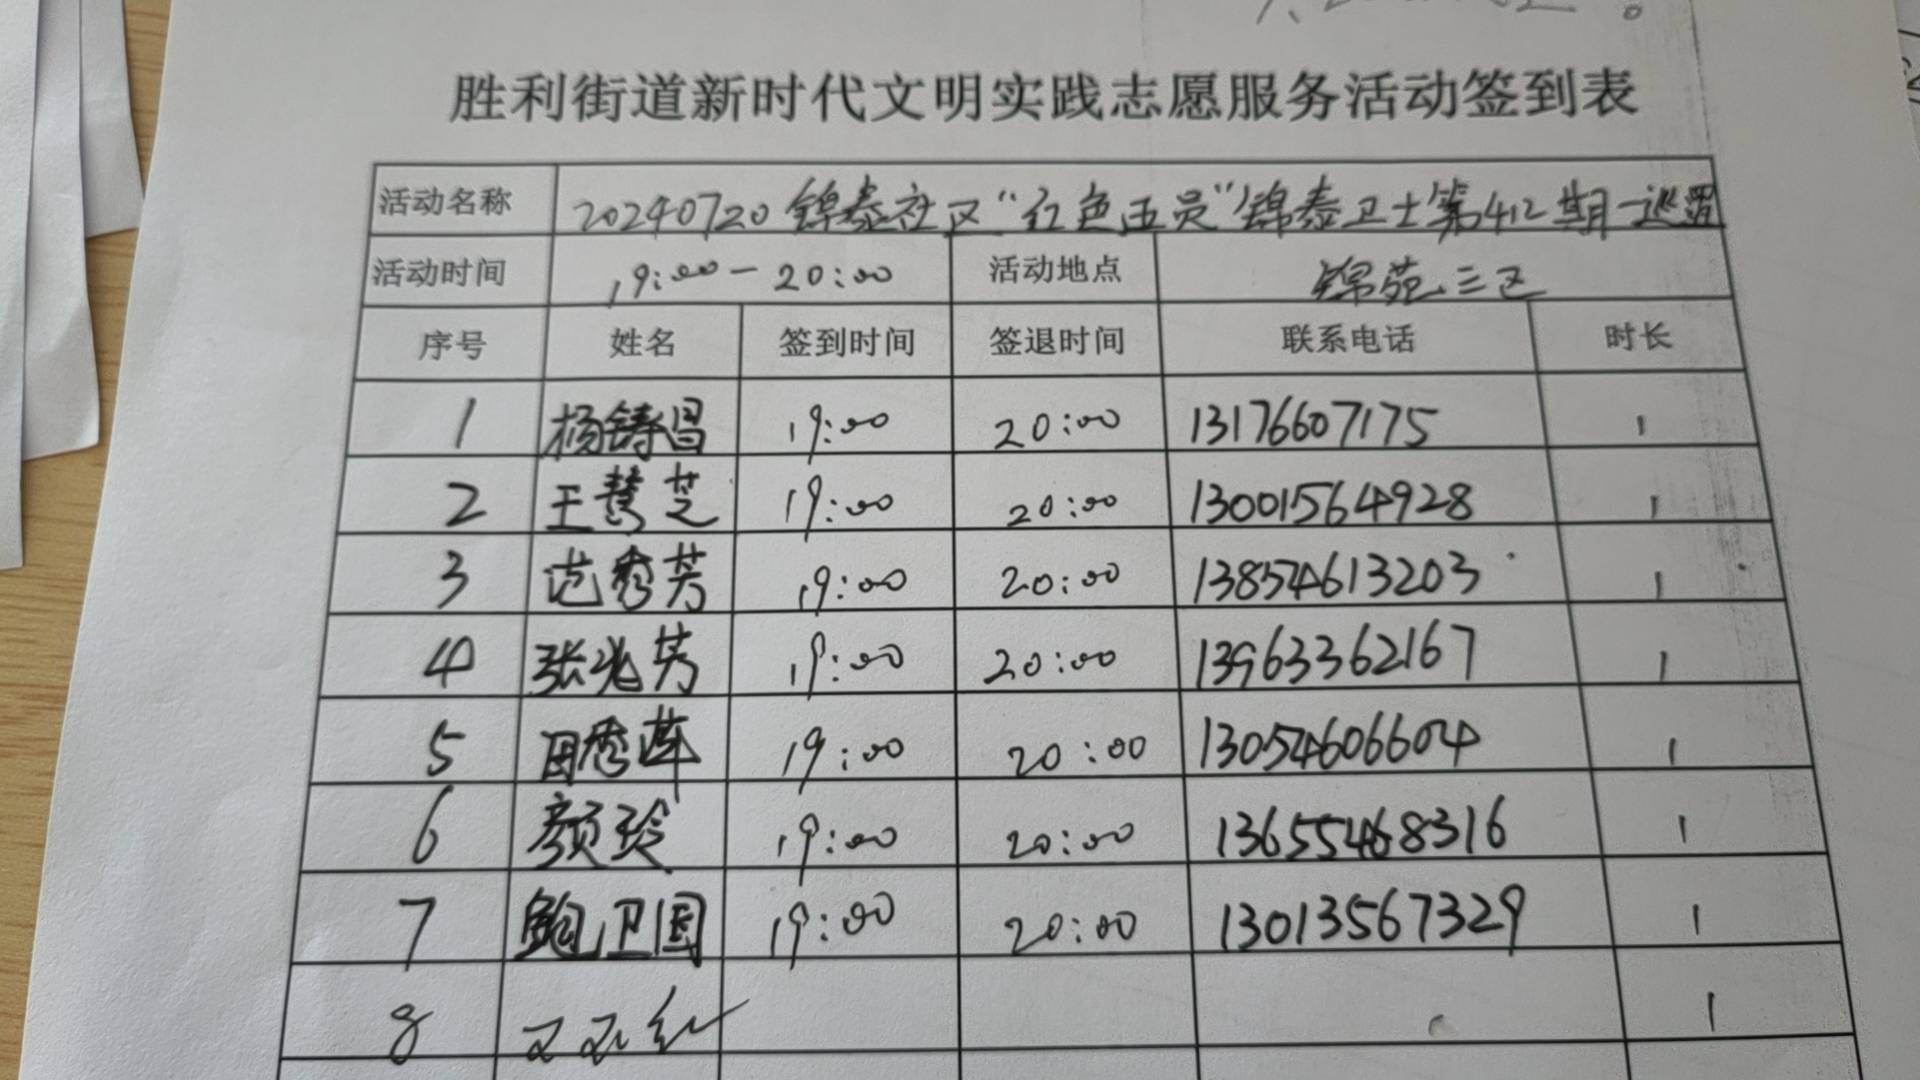 胜利街道新时代文明实践志愿服务活动签到表
活动名称 20240720锦泰社区“红色五员”锦泰卫士第412期—巡逻
活动时间 19:00-20:00 活动地点 锦苑三区
序号 姓名 签到时间 签退时间 联系电话 时长
1 杨铸昌 19:00 20:00 13176607175 1
2 王慧芝 19:00 20:00 13001564928 1
3 范秀芳 19:00 20:00 13854613203 1
4 张兆芳 19:00 20:00 13963362167 1
5 田秀莲 19:00 20:00 13054606604 1
6 颜玲 19:00 20:00 13655468316 1
7 鲍卫国 19:00 20:00 13013567329 1
8 1